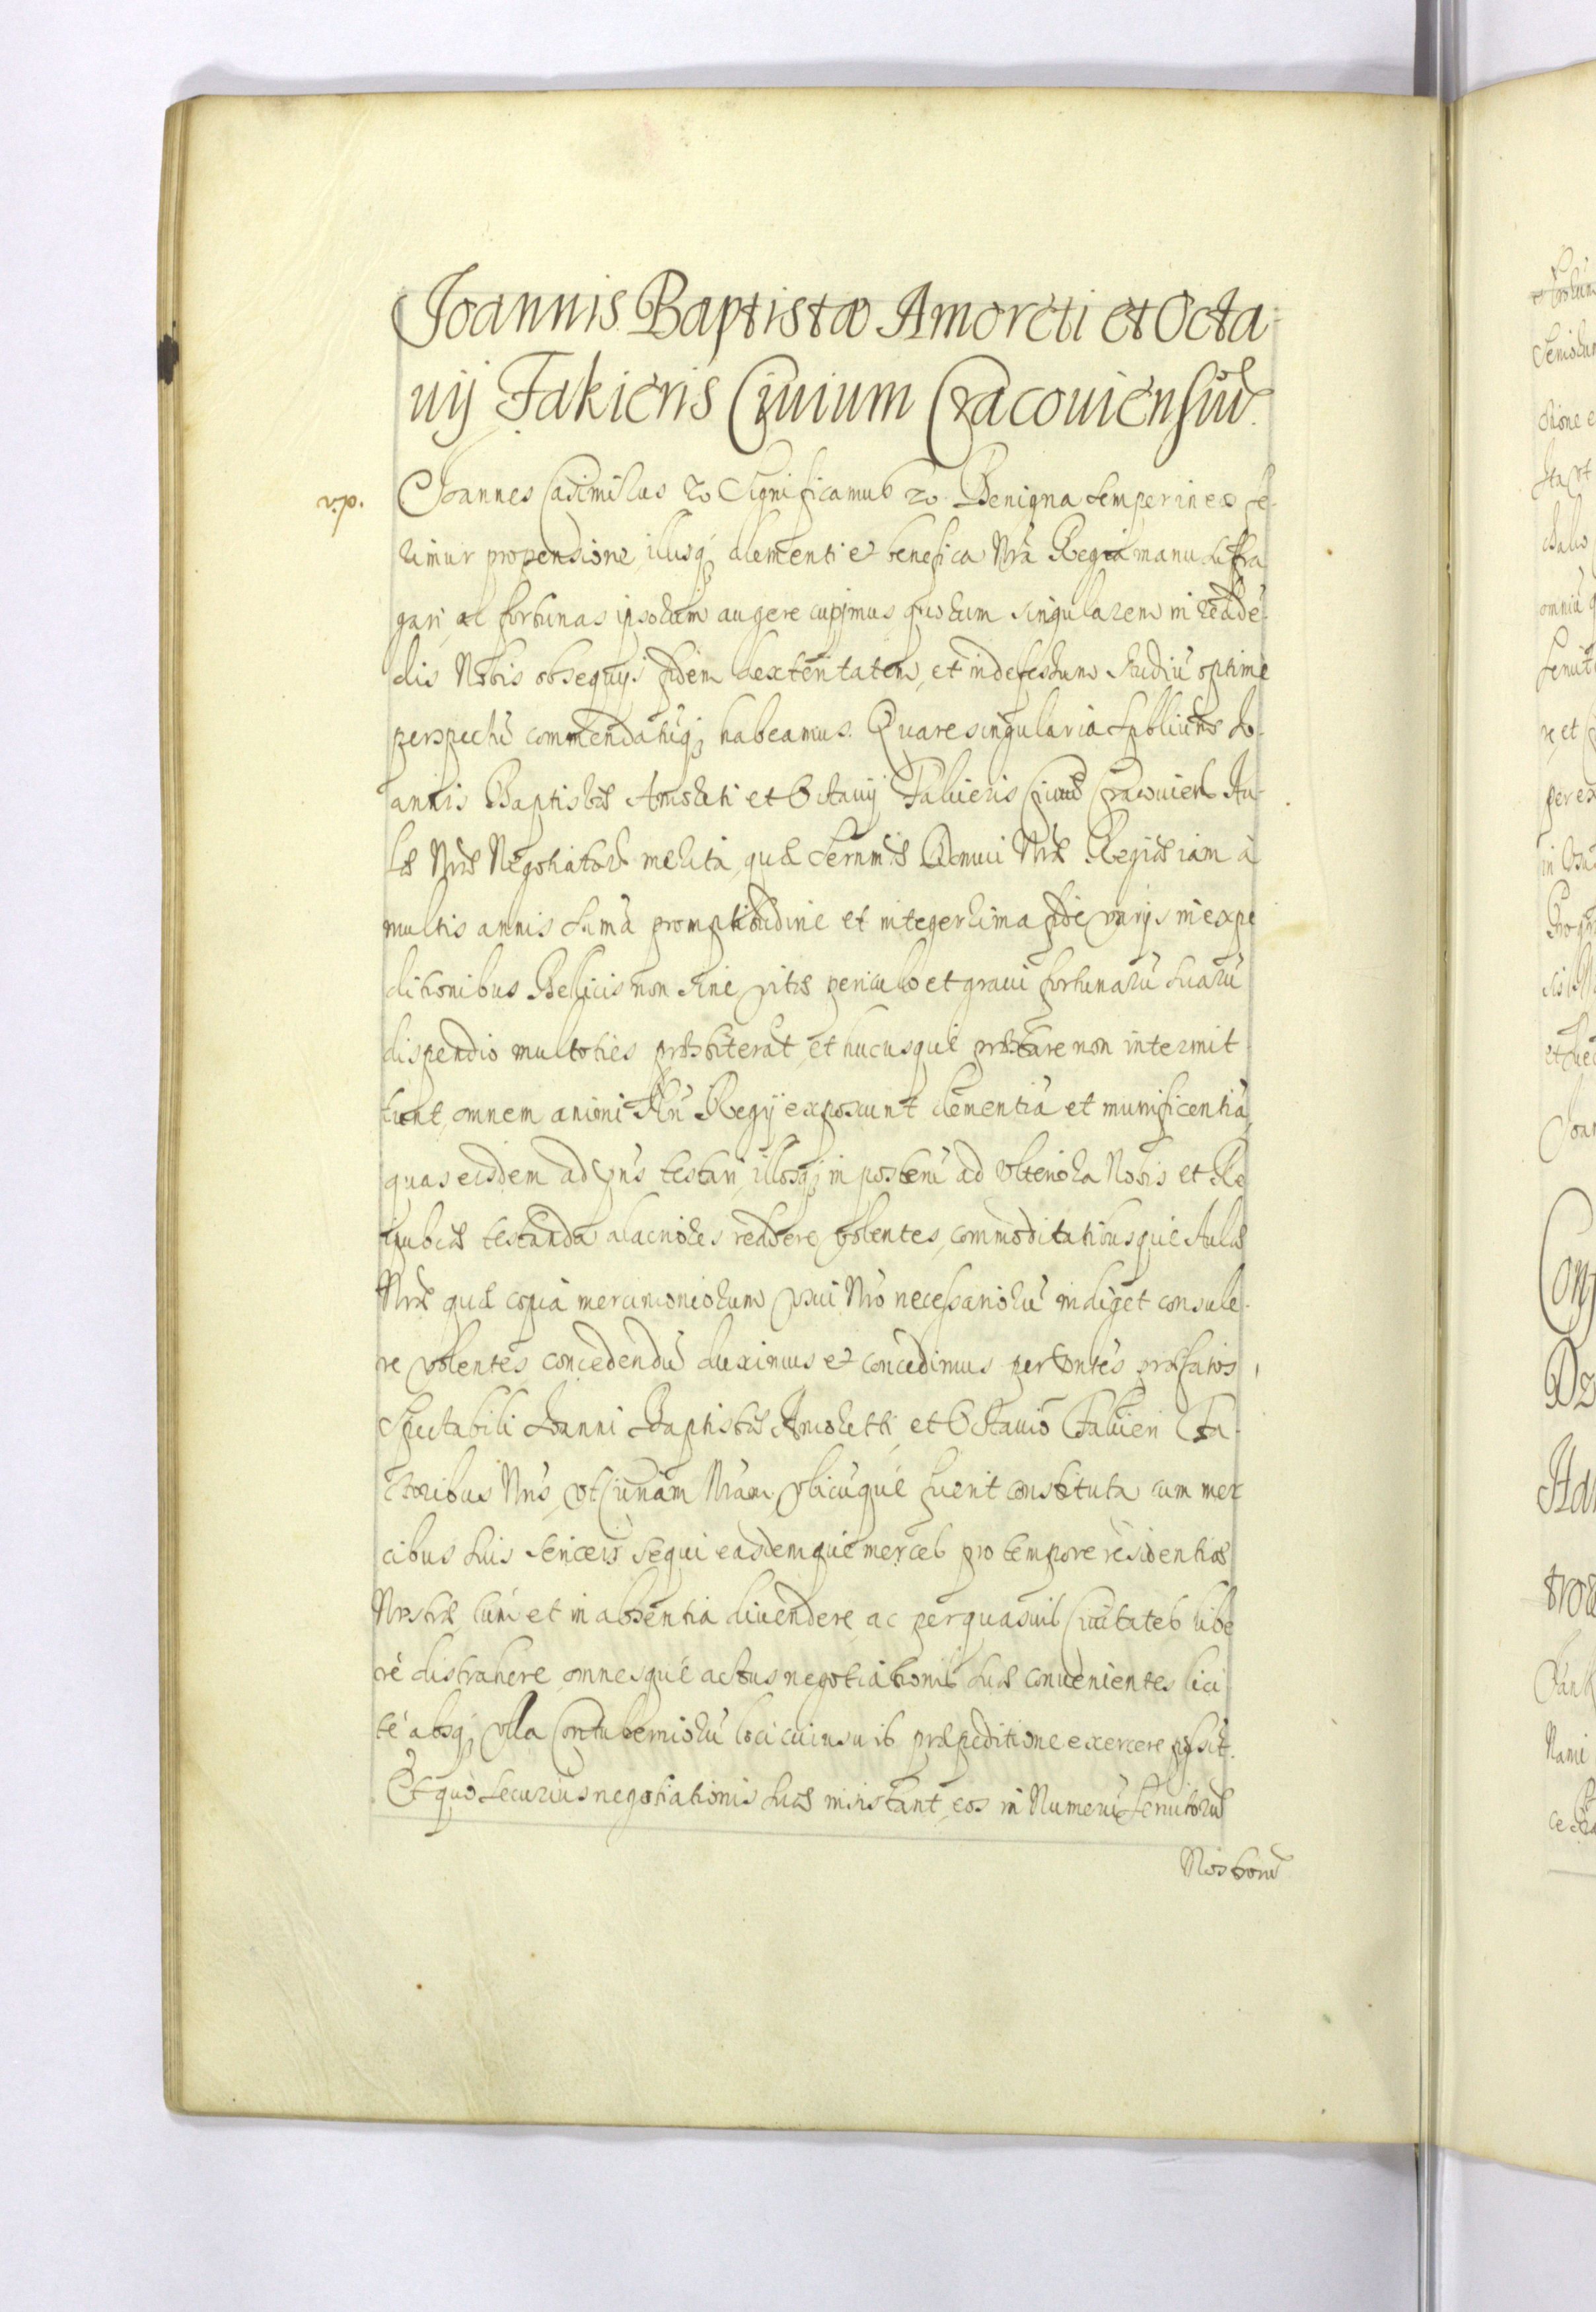 Joannis Baptistæ Amoreti et Octa-
uij Fakieris Ciuium Cracouiensiũ.
v.p.
Joannes Casimirus &c Significamus &c. Benigna semper in eos fe-
rimur propensione, illusq; clementi et benefica Nrã Regia manu suffra
gari, ac fortunas ipsorum augere cupimus quorum singularem in reddē
dis Nobis obsequijs fidem dexteritatem, et indefessum studiũ optimè
perspectũ commendatũq; habeamus. Quare singularia Jo-
annis Baptistæ Amoreti et Octauij Falueris Ciuiũ Cracouien Au-
læ Nræ Negotiatorũ merita, quæ Domui Nræ Regiæ iam à
multis annis sumã promptitudine et integerrima fide varijs in expe
ditionibus Bellicis non sine vitæ periculo et graui fortunarũ suarũ
dispendio multoties præstiterãt, et hucusque præstare non intermit
tunt, omnem animi Nri Regij exposcunt clementiã et munificentiã,
quas eisdem ad pñs testari, illosq; in posterũ ad vlteriora Nobis et Re
ipubcæ testanda alacriores reddere volentes, commoditatibusque Aulæ
Nræ quæ copia mercimoniorum vsui Nro necessariorũ indiget consule-
re volentes, concedendũ duximus et concedimus præfatis
Spectabili Joanni Baptistæ Amoretti, et Octauio Falueri Fa-
ctoribus Nris, vt Nram vbicũque fuerit constituta cum mer
cibus suis sequi easdemque merces pro tempore residentiæ
Nostræ, tum et in absentia diuendere, ac per quasuis Ciuitates libe
rè distrahere, omnesque actus negotiationis suæ conuenientes lici
tè absq; vlla Contuberniorũ loci cuiusuis præpeditione exercere possit.
Et quo securius negotiationis suæ insistant, eos in Numerũ Seruitorũ
Nostrorũ